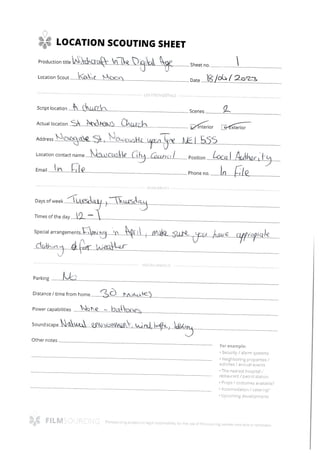 LOCATION SCOUTING SHEET
Production title Witchcraft In The Digital Age Sheet no. 1
Location Scout Katie Moon Date 18/06/2023
Script location A church Scenes 2
Actual location St Andrews Church Interior Exterior
Address Newgate St, Newcastle upon Tyne NE1 5SS
Location contact name Newcastle City Council Position Local Authority
Email In File Phone no. In File
Days of week Tuesday, Thursday
Times of the day 12-1
Special arrangements Filming in April, make sure you have appropriate
clothing for weather
Parking No
Distance / time from home 30 minutes
Power capabilities None - batteries
Soundscape Natural environment, wind, traffic, talking
Other notes
For example:
• Security / alarm systems
• Neighboring properties /
activities / annual events
• The nearest hospital /
restaurant / petrol station
• Props / costumes available?
• Accommodation / catering?
• Upcoming developments
FILMSOURCING